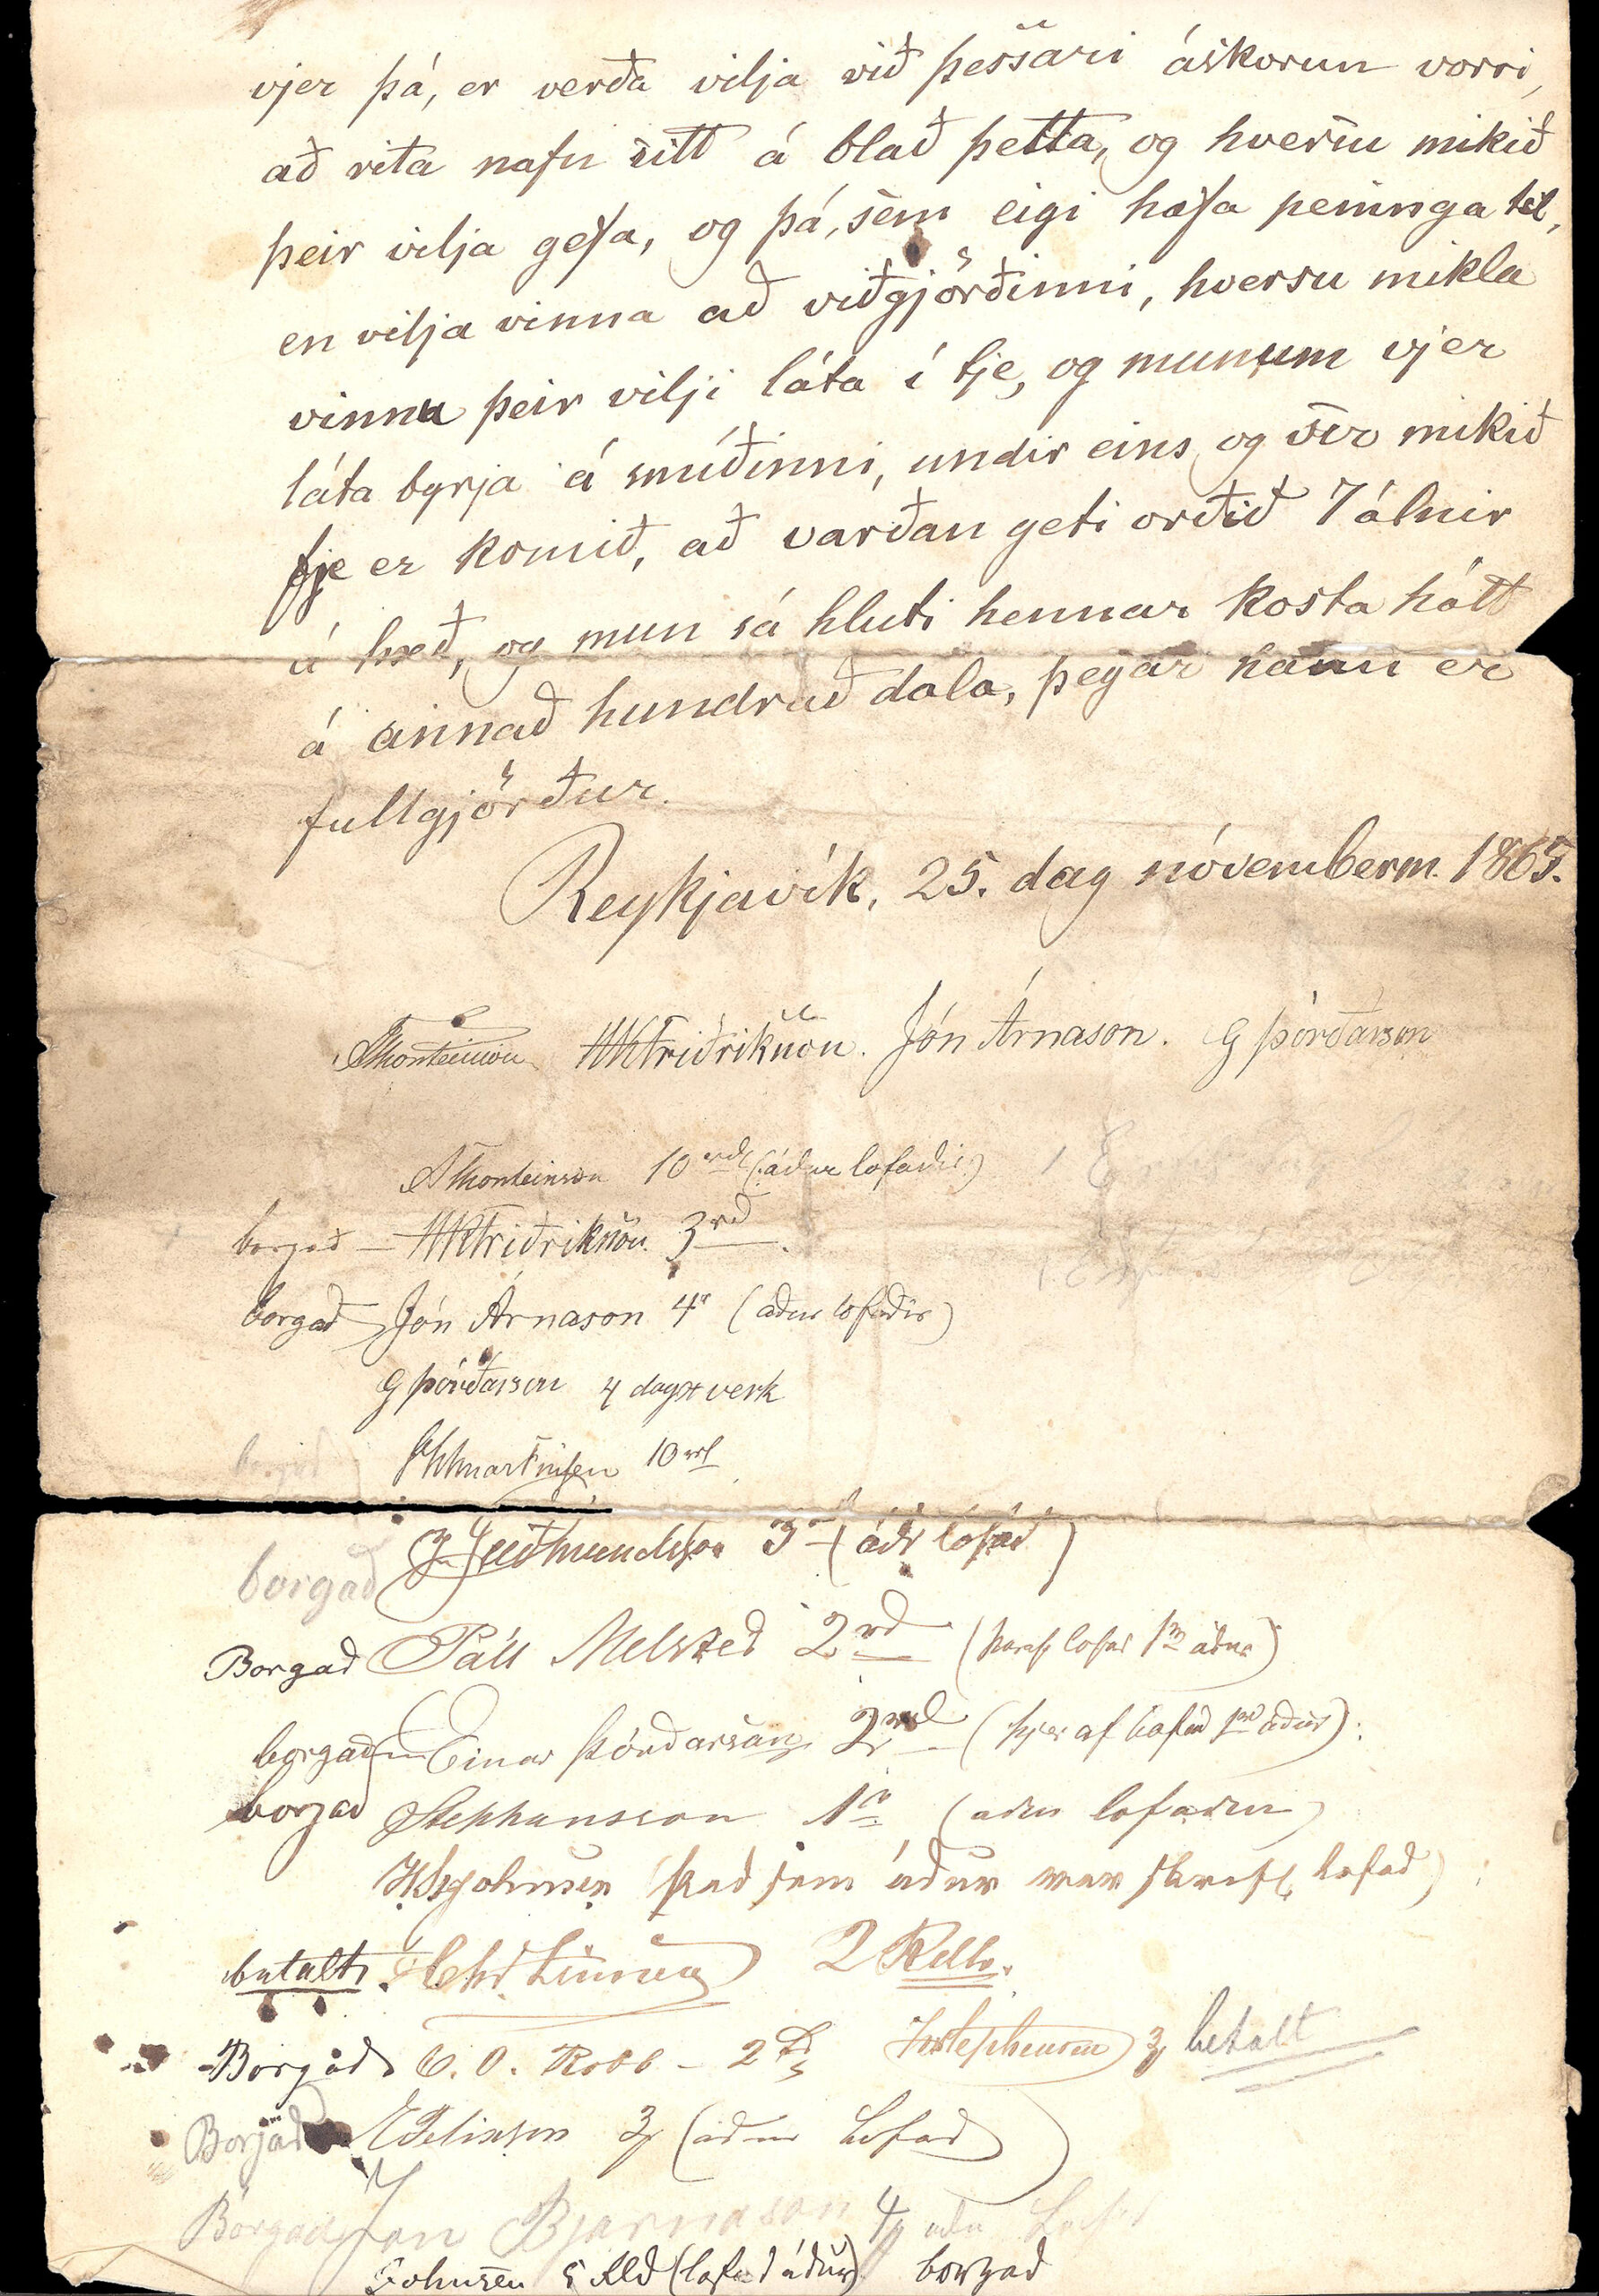 vjer þá, er verða vilja við þessari áskorun vorri,
að rita nafn sitt á blað þetta, og hversu mikið
þeir vilja gefa, og þá, sem eigi hafa peninga til,
en vilja vinna að viðgjörðinni, hversu mikla
vinnu þeir vilji láta í tje, og munum vjer
láta byrja á smíðinni, undir eins og svo mikið
fje er komið, að varðan geti orðið 7 álnir
á hæð, og mun sá hluti hennar kosta hátt
á annað hundrað dala, þegar hann er
fullgjörður.
Reykjavík, 25. dag nóvemberm. 1867.
AThorsteinson HKFriðriksson. Jón Árnason. G Þórðarson
AThorsteinson 10 rd (áður lofaðir)
borgað – HKFriðriksson. 3 rd
borgað Jón Árnason 4 r (aður lofaðir)
G Þórðarson 4 dagsverk
10 rd
borgað Guðmundsson 3 (áðr lofað)
Borgað Páll Melsteð 2 rd (haraf lofað 1 áður)
borgað Einar Þórðarson 2 rd (hjer af lofað áður).
borgað Stephansson 1 (aður lofaður)
það sem áður var lofað
betalt. Chr. 2 Rdlr.
Borgað O. Robb – 2 Stephensen 3 betalt
Borgað 3 (áður Lofað)
Borgað Jon Bjarnason 4 aður Lofað
Johnsen 5 Rd (lofað áður) borgað